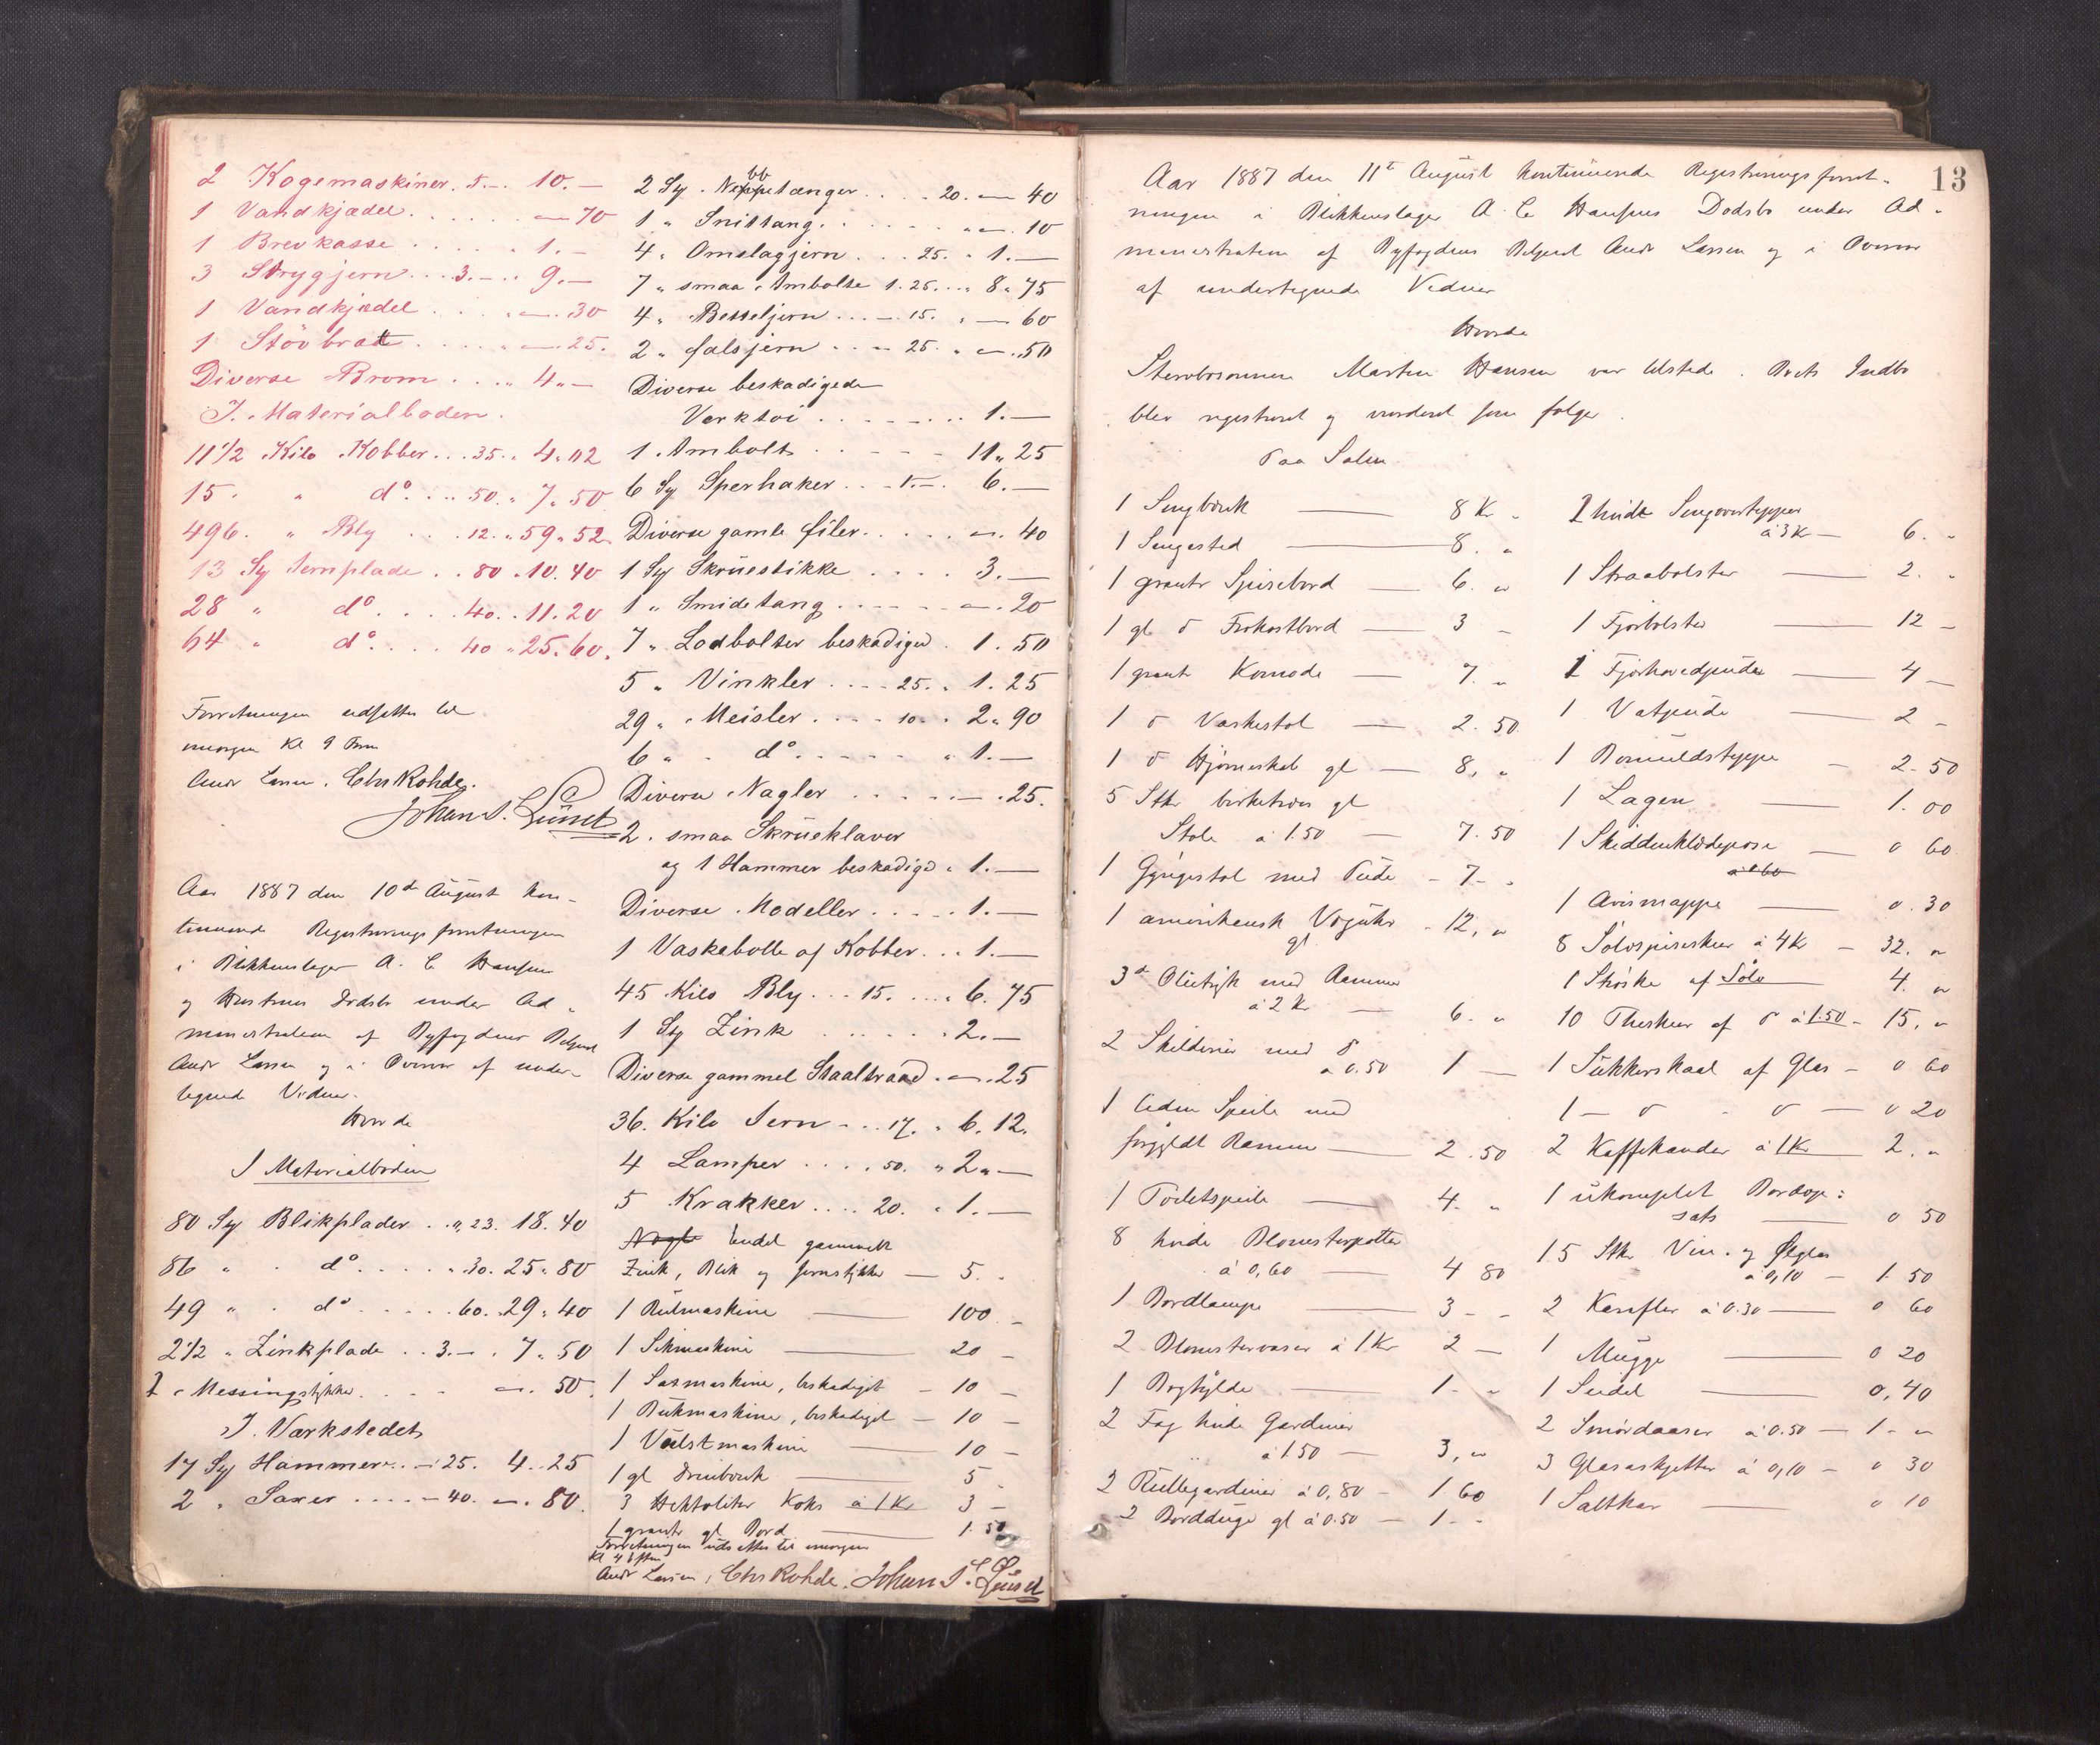 2 Kogemaskiner. 5.-. 10.-
1 Vandkjædel . . . . . . - 70
1 Brevkasse . . . . . 1.-
3 Strygjern . . . 3.-. . 9.-
1 Vandkjædel . . . . . - . 30
1 Stövbræt . . . . . - . 25.
Diverse Brom . . . . 4 " -
I. Materialboden.
11 1/2 Kilo Kobber . . . 35. . 4 " 02
15 " " do . . . . 50. " 7 " 50
496. " Bly . . . . 12. " 59 " 52
13 Sty Jernplade . . 80 . 10. 40
28 " do . . . . 40. . 11. 20
64 " do . . . . 40 " 25. 60.
Forretningen udsættes til
imorgen Kl 9 Fm
Andr Larsen. Chr Rohde.
Johan S. Lund
Aar 1887 den 10de August kon-
tinuerede Registreringsforretningen
i Blikkenslager A. C. Hansen
og Hustrues Dødsbo under Ad-
ministration af Byfogdens Betjent
Andr Larsen og i Overvær af under-
tegnede Vidner.
Hvorda
I Materialboden
80 Sty Blikplader . . " 23. 18. 40
86 " " do . . . . " 30. 25 " 80
49 " " do . . . . . 60. . 29 " 40
2 1/2 " Zinkplade . . 3.-. . 7 " 50
2 " Messingstykker . . . . - . 50.
I. Værkstedet
17 Sty Hammere . . - 25. 4. 25
2 " Saxer . . . . - 40. - . 80.
2 Sty. Nebbetænger . . . . 20. - 40
1 " Snittang . . . . . . " - . 10
4 " Omslagjern . . . 25. . 1.-
7 " smaa Ambolte 1. 25. . . " 8 " 75
4 " Besseljern . . . - 15. . - 60
2 " falsjern . . . - 25. " - . 50
Diverse beskadigede
Værktöi . . . . . . . 1.-
1 Ambolt . . . . . 11 " 25
6 Sty Sperhaker . . - 1.-. 6.-
Diverse gamle filer . . . . . - . 40
1 Sty Skruestikke . . . . 3.-
1 " Smidetang . . . . . - . 20
7 " Lodbolter beskadiged . 1. 50
5 " Vinkler . . . - 25. " 1. 25
29 " Meisler . . . . 10. . 2 " 90
6 " " do . . . . . " 1.-
Diverse Nagler . . . . . - . 25.
2. smaa Skrueklaver
og 1 Hammer beskadigd " 1.-
Diverse Modeller . . . . . 1.-
1 Vaskebolle af Kobber . . . 1.-
45 Kilo Bly . . . 15. . . . 6. 75
1 Sty Zink . . . . . . 2.-
Diverse gammel Staaltraad . - . 25
36. Kilo Jern - . . 17. " 6. 12.
4 Lamper . . . . 50. " 2 " -
5 Krakker . . . . 20. " 1.-
Nogle Endel gammelt
Zink, Blik og Jernstykker - 5. -
1 Rulmaskine - 100 -
1 Sikmaskine - 20 -
1 Saxmaskine, beskadiget - 10 -
1 Bukmaskine, beskadiget - 10 -
1 Vulstmaskine - 10 -
1 gl Dreiebænk - 5
3 Hektoliter Koks á 1 Kr 3 -
1 grant gl Bord - 1. 50
Forretningen udsættes til imorgen
Kl 4 Eftm
Andr Larsen, Chr Rohde. Johan S. Lund
13
Aar 1887 den 11te August kontinuerede Registreringsforret-
ningen i Blikkenslager A. C. Hansens Dødsbo under Ad-
ministration af Byfogdens Betjent Andr Larsen og i Overvær
af undertegnede Vidner
Hvorda
Stervbosønnen Martin Hansen var tilstede. Boets Indbo
blev registreret og vurderet som følger.
Paa Salen.
1 Sengbænk - 8 Kr -
1 Sengested - 8. "
1 grant Spisebord - 6. "
1 gl d Frokostbord - 3 -
1 grant Komode - 7. "
1 d Vaskestol - 2. 50
1 d Hjørneskab gl - 8, "
5 Stkr birketræs gl
Stole á 1.50 - 7. 50
1 Gyngestol med Pude - 7. - "
1 amerikansk VægUhr gl - 12, "
3de Olietryk med Rammer
á 2 Kr - 6. "
2 Skilderier med d
á 0.50 1 -
1 liden Speile med
forgyldt Ramme - 2. 50
1 Toiletspeile - 4. "
8 hvide Blomsterpotter
á 0,60 - 4 80
1 Bordlampe - 3 - -
2 Blomstervaser á 1 Kr 2 -
1 Boghylde - 1. "
2 Fag hvide Gardiner
á 1 50 - 3, "
2 Rullegardiner á 0,80 - 1 60
2 Bordduge gl á 0.50 - 1 - -
2 hvide Sengovertepper
á 3 Kr - 6. -
1 Straabolster - 2. -
1 Fjærbolster - 12 -
1 Fjærhovedpude - 4 -
1 Vatpude - 2 -
1 Bomuldsteppe - 2. 50
1 Lagen - 1. 00
1 Skiddenklædepose - 0 60
á 60
1 Avismappe - 0. 30
8 Sølvspiseskeer á 4 Kr - 32. "
1 Strøske af Sølv - 4. "
10 Theskeer af d á 1.50 - 15, "
1 Sukkerskaal af Glas - 0 60
1 - d - d - 0 20
2 Kaffekander á 1 Kr 2. "
1 ukomplet Bordop:
sats - 0 50
15 Stkr Vin- og Ølglas
á 0,10 - 1. 50
2 Karafler á 0.30 - 0 60
1 Mugge - 0 20
1 Seidel - 0, 40
2 Smørdaaser á 0.50 - 1 - "
3 Glasaskjetter á 0,10 - 0 30
1 Saltkar - 0 10